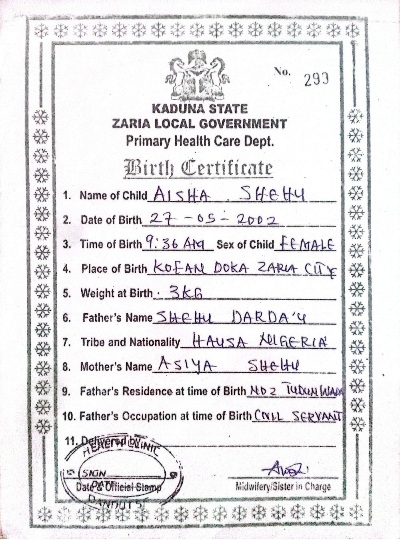 No. 299
KADUNA STATE
ZARIA LOCAL GOVERNMENT
Primary Health Care Dept.
Birth Certificate
1. Name of Child AISHA SHEHU
2. Date of Birth 27-05-2002
3. Time of Birth 9:36 AM Sex of Child FEMALE
4. Place of Birth KOFAN DOKA ZARIA CITY
5. Weight at Birth 3KG
6. Father's Name SHEHU DARDA'U
7. Tribe and Nationality HAUSA NIGERIA
8. Mother's Name ASIYA SHEHU
9. Father's Residence at time of Birth NO2 TUDUN WADA
10. Father's Occupation at time of Birth CIVIL SERVANT
11. Delivered by
HEALTH CLINIC
SIGN
Date & Official Stamp
Midwifery/Sister in Charge